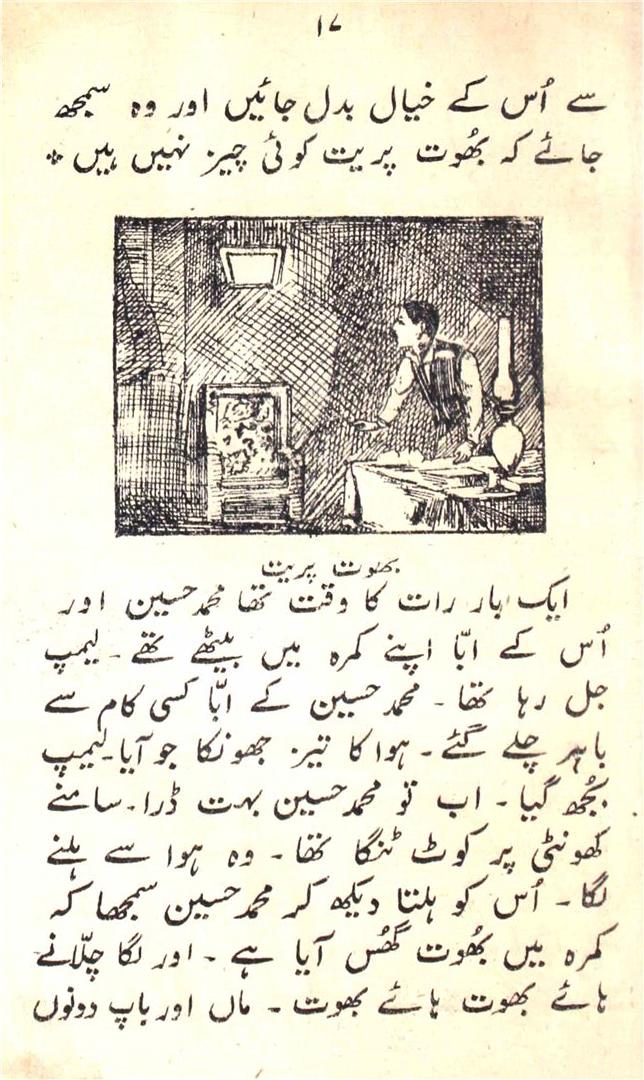 ۱۷
سے اُس کے خیال بدل جائیں اور وہ سمجھ
جائے کہ بھُوت پریت کوئی چیز نہیں ہیں *
بھوت پریت
ایک بار رات کا وقت تھا محمد حسین اور
اُس کے ابّا اپنے کمرہ میں بیٹھے تھے۔ لیمپ
جل رہا تھا۔ محمد حسین کے ابّا کسی کام سے
باہر چلے گئے۔ ہوا کا تیز جھونکا جو آیا۔ لیمپ
بُجھ گیا۔ اب تو محمد حسین بہت ڈرا۔ سامنے
کھونٹی پر کوٹ ٹنگا تھا۔ وہ ہوا سے ہلنے
لگا۔ اُس کو ہلتا دیکھ کر محمد حسین سمجھا کہ
کمرہ میں بھُوت گھُس آیا ہے۔ اور لگا چِلّانے
ہائے بھوت ہائے بھوت۔ ماں اور باپ دونوں